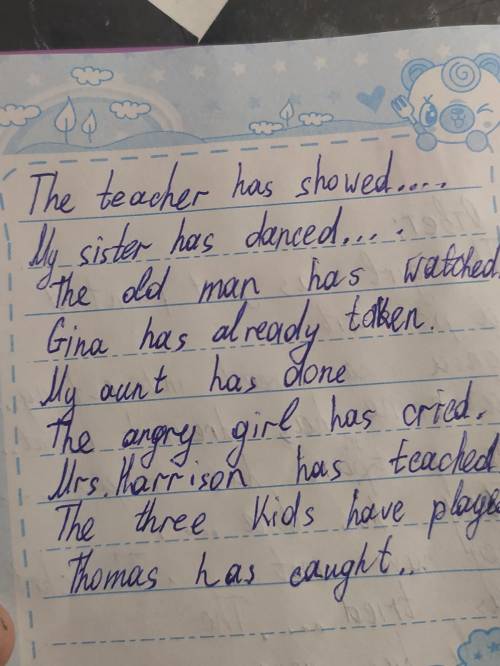 The teacher has showed.....
My sister has danced....
The old man has watched.
Gina has already taken.
My aunt has done
The angry girl has cried.
Mrs. Harrison has teached
The three kids have played
Thomas has caught..